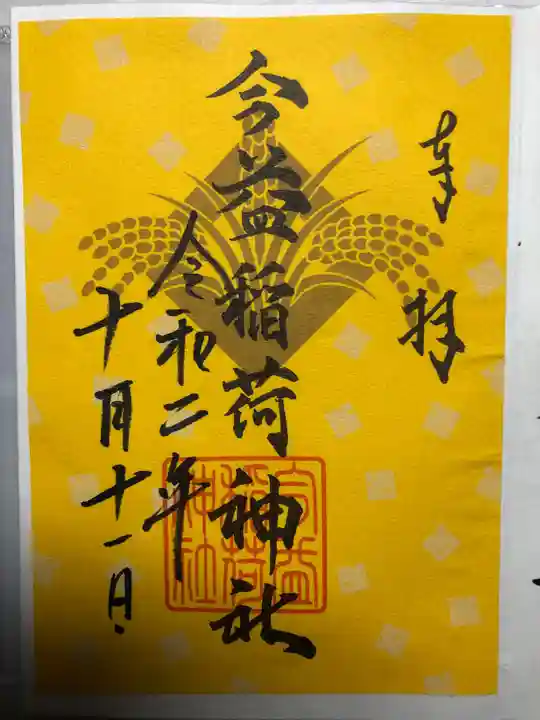 奉拝
今益稲荷神社
令和二年
十月十一日